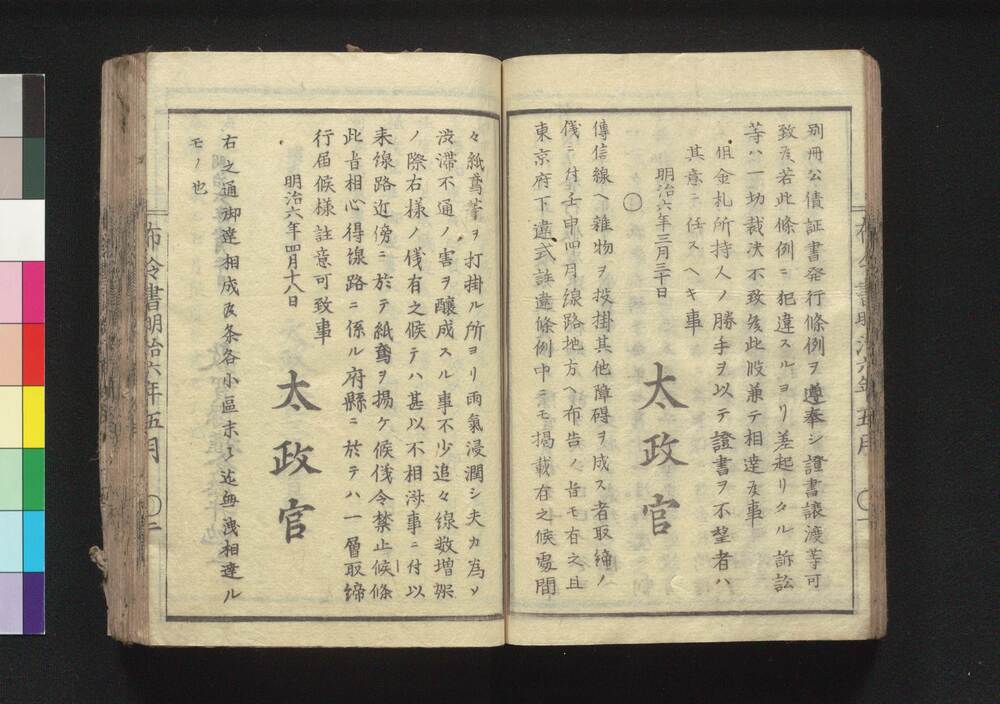 別冊公債証書発行條例ヲ遵奉シ證書讓渡等可
致矣若此條例ニ犯違スルヨリ差起リタル訴訟
等ハ一切裁决不致矣此段兼テ相達矣事
但金札所持人ノ勝手ヲ以テ證書ヲ不望者ハ
其意ニ任スヘキ事
明治六年三月三十日
太政官
〇
傳信線ヘ雜物ヲ投掛其他障碍ヲ成ス者取締ノ
儀ニ付壬申四月線路地方ヘ布告ノ旨モ有之且
東京府下違式註違條例中ニモ掲載有之候處間
々紙鳶等ヲ打掛ル所ヨリ雨氣浸潤シ夫カ為メ
渋滞不通ノ害ヲ釀成スル事不少追々線数増架
ノ際右様ノ儀有之候テハ甚以不相済事ニ付以
来線路近傍ニ於テ紙鳶ヲ揚ケ候儀令禁止候條
此旨相心得線路ニ係ル府縣ニ於テハ一層取締
行届候様註意可致事
明治六年四月十八日
太政官
右之通御達相成矣条各小區末々迄無洩相達ル
モノ也
布令書明治六年五月 〇一
布令書明治六年五月 〇二